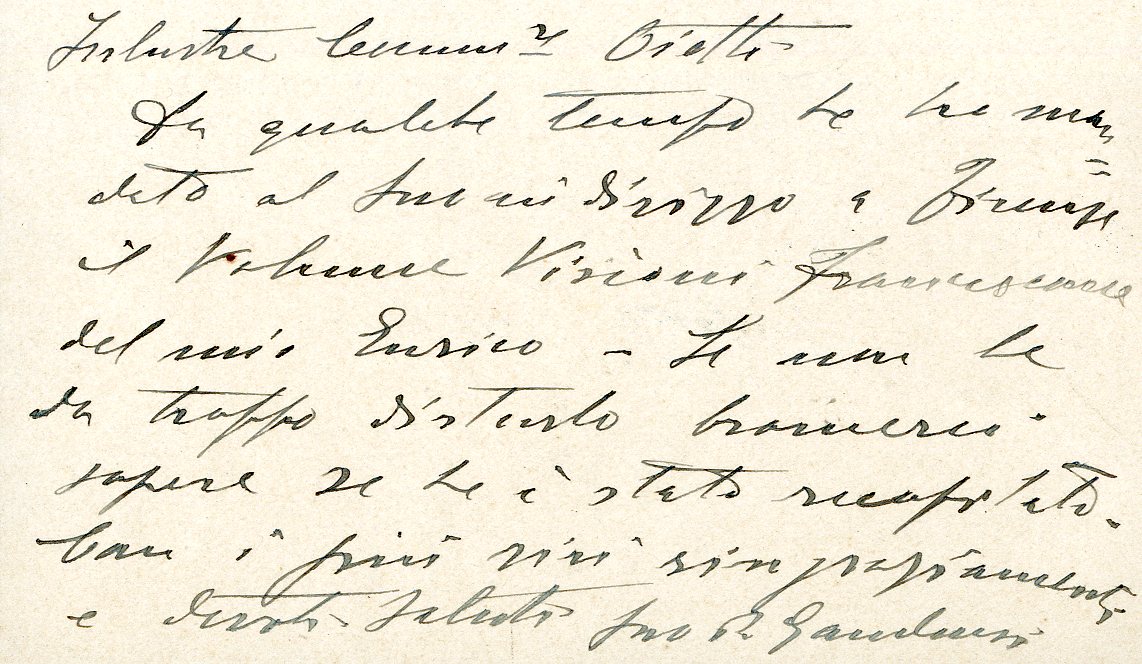 Illustre Comm.r Ojetti
Da qualche tempo Le ho man
dato al Suo indirizzo a Firenze
il Volume Visioni Francescane
del mio Enrico – Se non Le
da troppo disturbo bramerei
sapere se Le è stato recapitato.
Con i più vivi ringraziamenti
e devoti saluti Suo